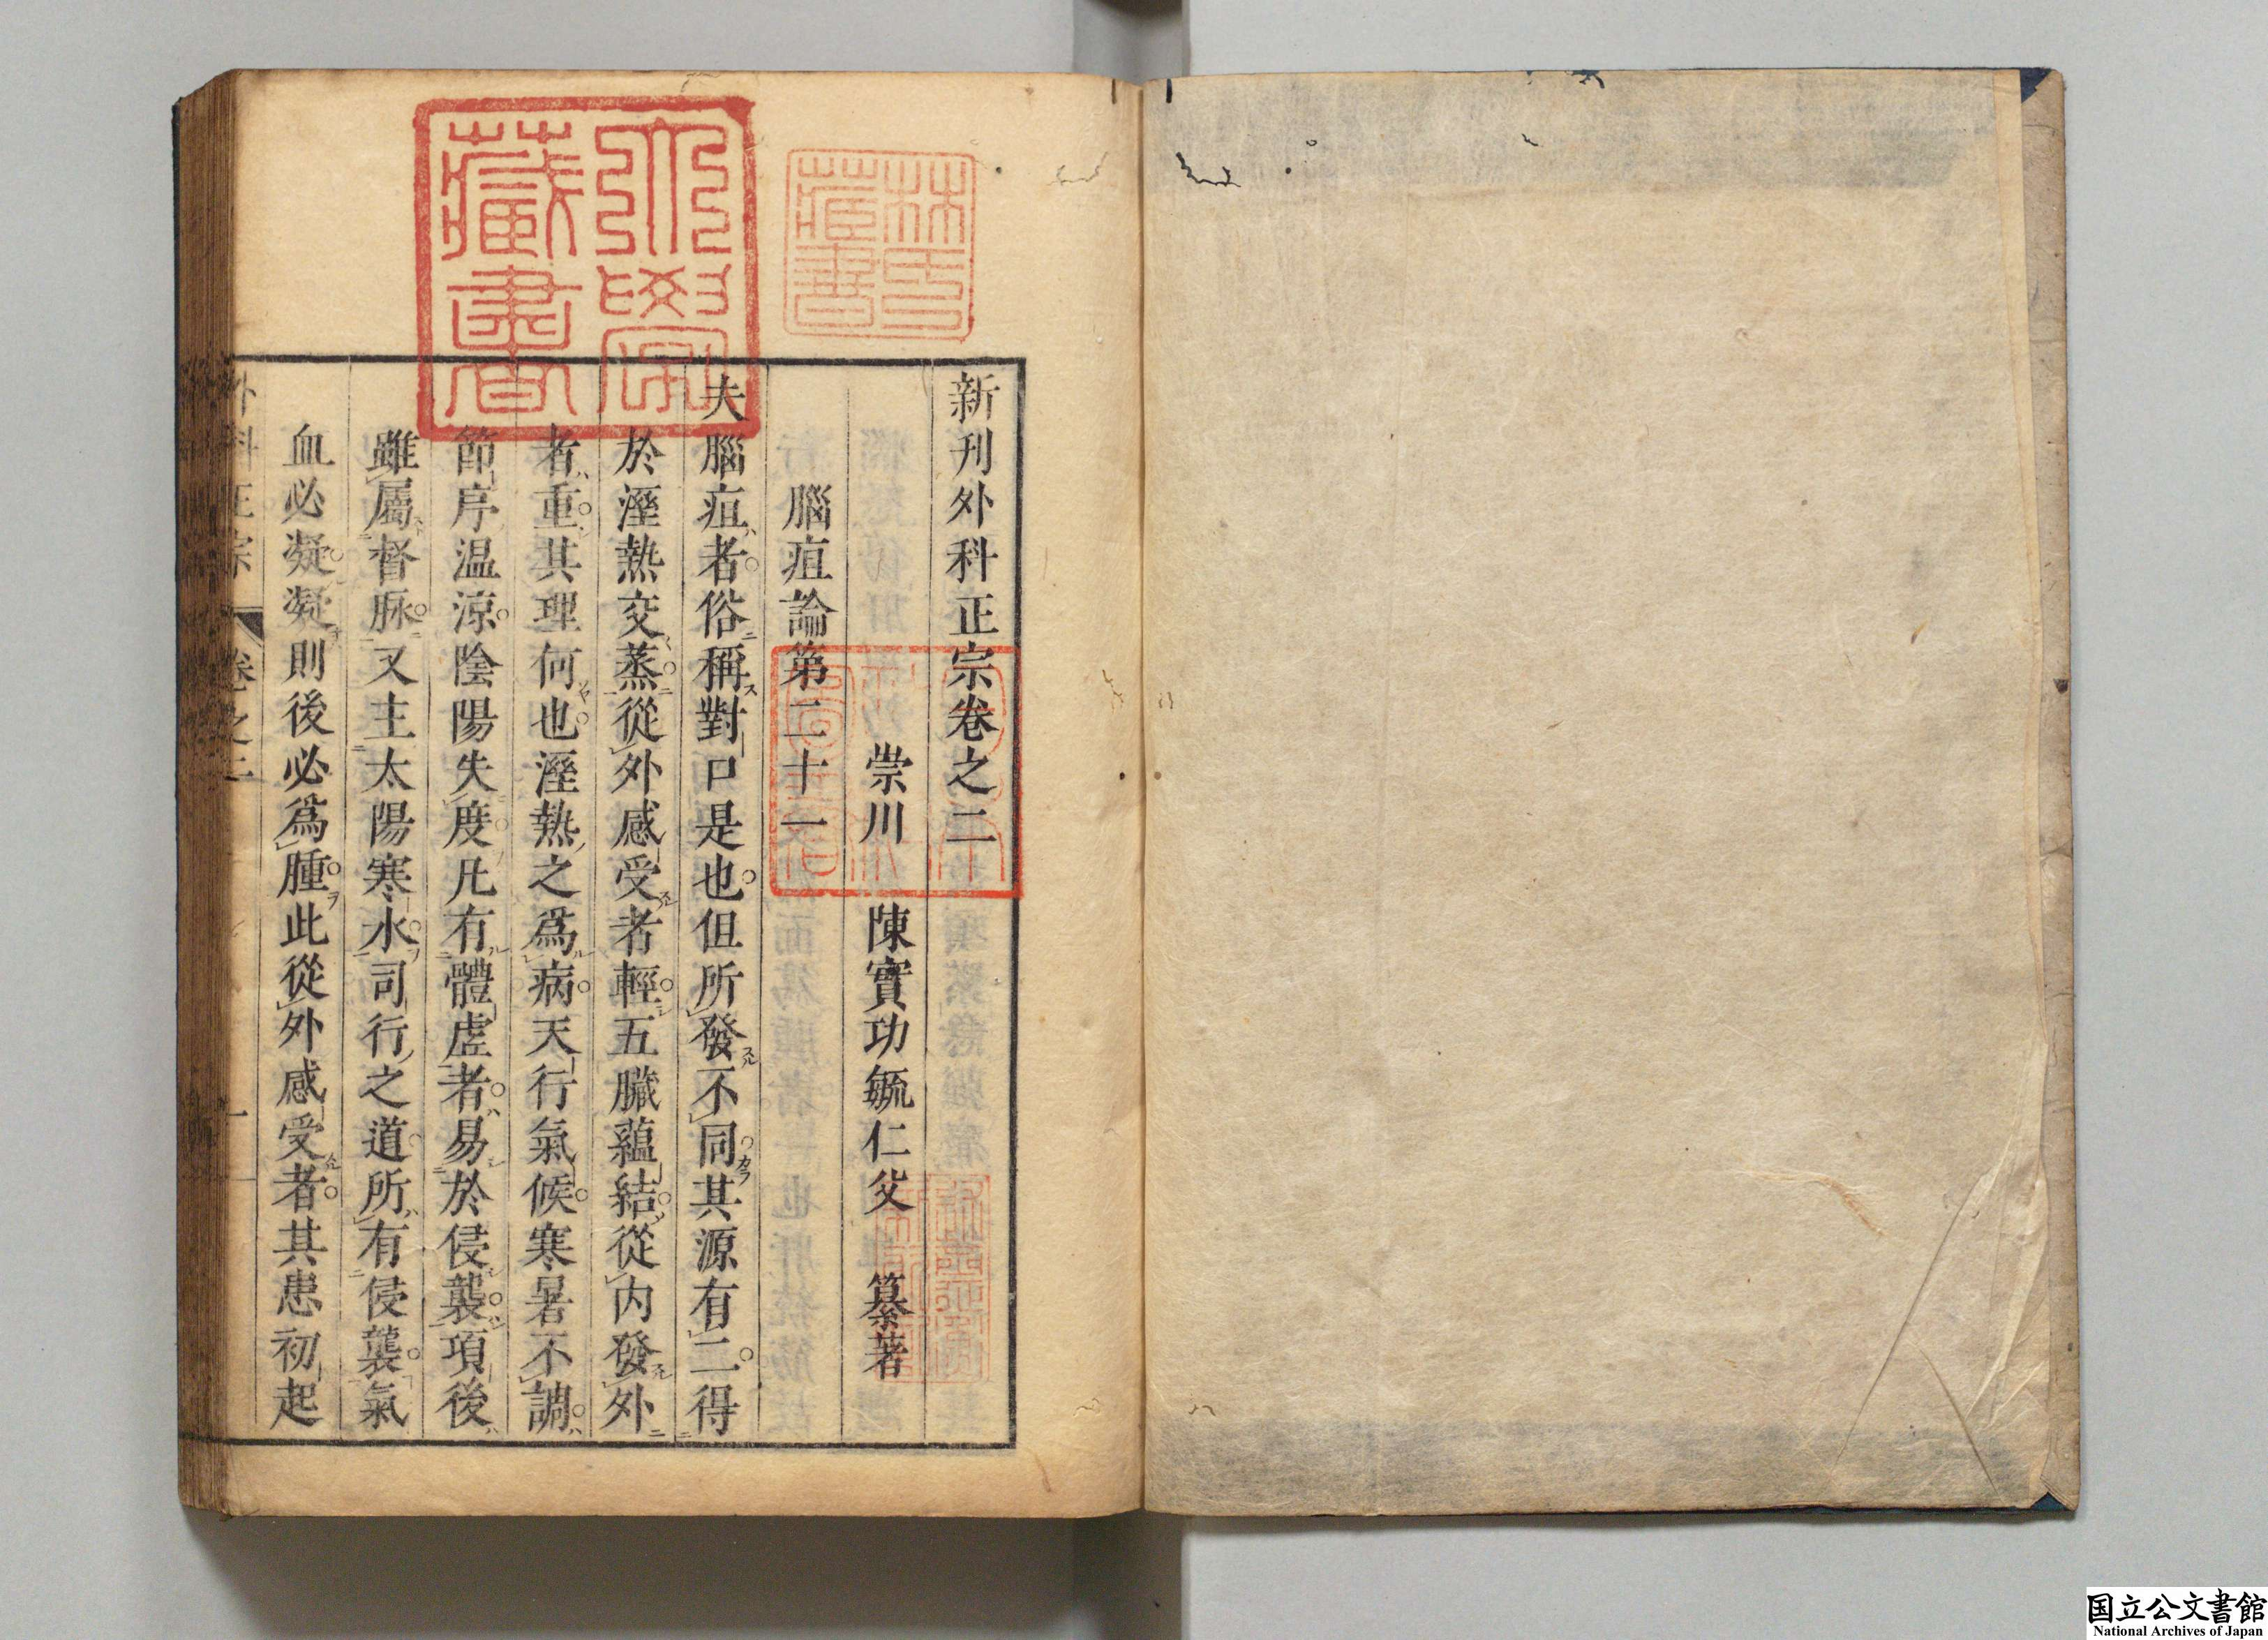 新刊外科正宗卷之二
崇川 陳實功毓仁父 纂著
腦疽論第二十一
夫腦疽者俗稱對口是也但所發不同其源有二得
於溼熱交蒸從外感受者輕五臟蘊結從內發外
者重其理何也溼熱之爲病天行氣候寒暑不調
節序温涼陰陽失度凡有體虛者易於侵襲項後
雖屬督脉又主太陽寒水司行之道所有侵襲氣
血必凝凝則後必爲腫此從外感受者其患初起
外科正宗 卷之二 一
林氏藏書
藏書
国立公文書館
National Archives of Japan